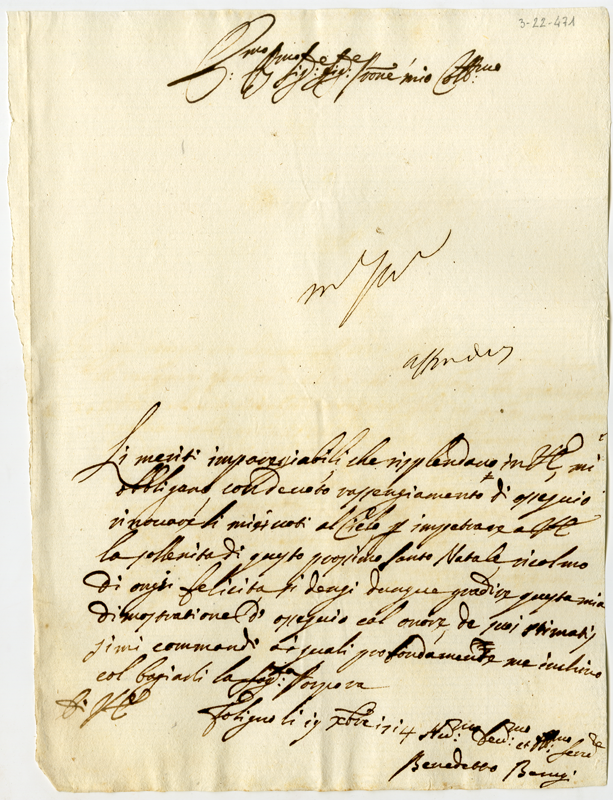 3-22-471
Sig: Sig: Prone mio Coll:mo
Li meriti impareggiabili che risplendano in V.E., mi
obbligano con devoto rassegniamento di ossequio
rinovare li miei voti al Cielo p impetrare a V.E.
la sollenità di questo prossimo Santo Natale ricolmo
di ogni felicità si degni dunque gradire questa mia
dimostratione di ossequio col onore de suoi stimatis
simi commandi a i quali profondamente me inchino
col baciarli la Porpora
Di V.E.
Foligno li 19 Xbre 1714
Benedetto